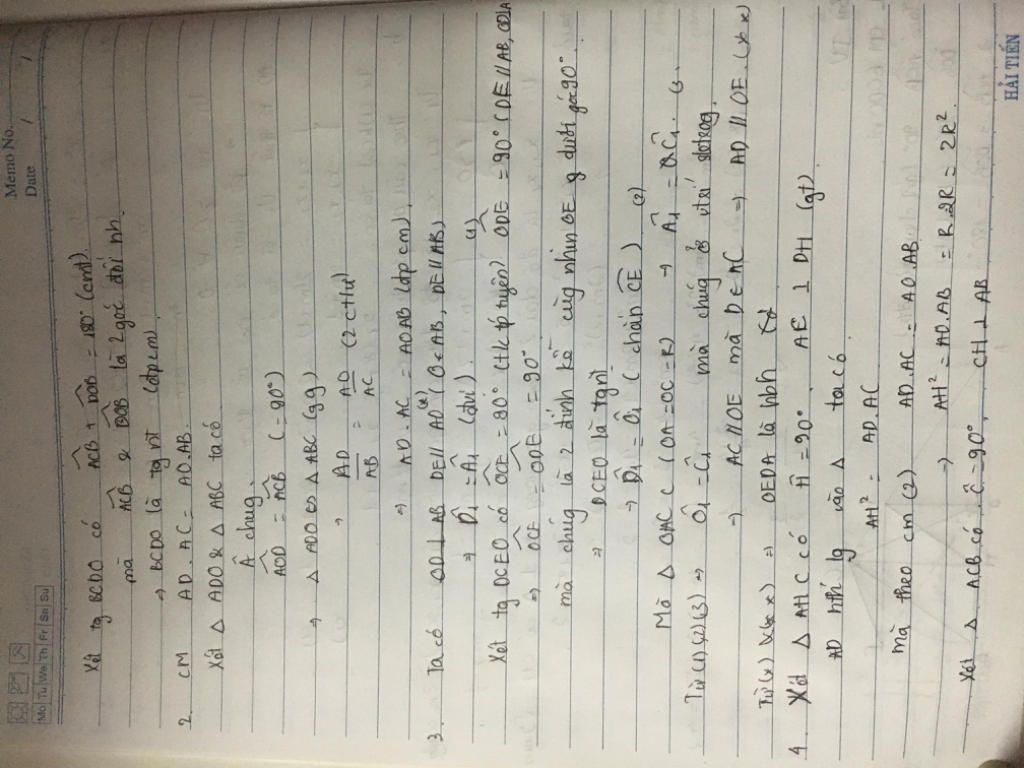 Memo No.
Date / /
Mo Tu We Th Fr Sa Su
Xét tg BCDO có ACB + DOB = 180° (cmt).
mà ACB & DOB là 2 góc đối nh.
→ BCDO là tg nt (đpcm).
2. CM AD. AC = AO. AB.
Xét Δ ADO & Δ ABC ta có
 chung.
AOD = ACB (= 90°)
→ Δ ADO ∽ Δ ABC (gg)
→ AD/AB = AO/AC (2 ctứ)
→ AD. AC = AO AB (đpcm).
3. Ta có OD ⊥ AB DE // AO (O ∈ AB, DE // AB)
⇒ D̂₁ = Â₁ (đvị). (1)
Xét tg DCEO có OCE = 90° (t/c tiếp tuyến) ODE = 90° (DE // AB,
⇒ OCE = ODE = 90°
mà chúng là 2 đỉnh kề cùng nhìn OE g dưới góc 90°
⇒ DCEO là tg nt.
→ D̂₁ = Ô₁ (chắn CE) (2)
Mà Δ OAC c (OA = OC = R) → Â₁ = Ĉ₁. (3)
Từ (1) (2) (3) ⇒ Ô₁ = Ĉ₁ mà chúng ở vtrí sletrong.
⇒ AC // OE mà D ∈ AC ⇒ AD // OE. (**)
Từ (*) (**) ⇒ OEDA là hbh
4. Xét Δ AHC có Ĥ = 90°. AE ⊥ DH (gt)
AD htứ lg vào Δ ta có
AH² = AD. AC
Mà theo cm (2) AD. AC = AO. AB
→ AH² = AO. AB = R. 2R = 2R².
Xét Δ ACB có Ĉ = 90°, CH ⊥ AB
HẢI TIẾN